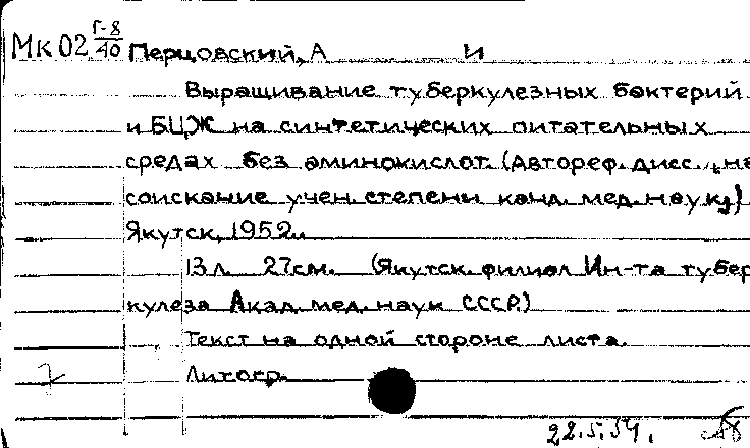 Мк 02 Г-8/40 Перцовский, А И
Выращивание туберкулезных бактерий
и БЦЖ на синтетических питательных
средах без аминокислот. (Автореф. дисс., на
соискание учен. степени канд. мед. наук.)
Якутск, 1952.
13 л. 27 см. (Якутск. филиал Ин-та тубер
кулеза Акад. мед. наук СССР.)
Текст на одной стороне листа.
Литогр.
22.5.54.